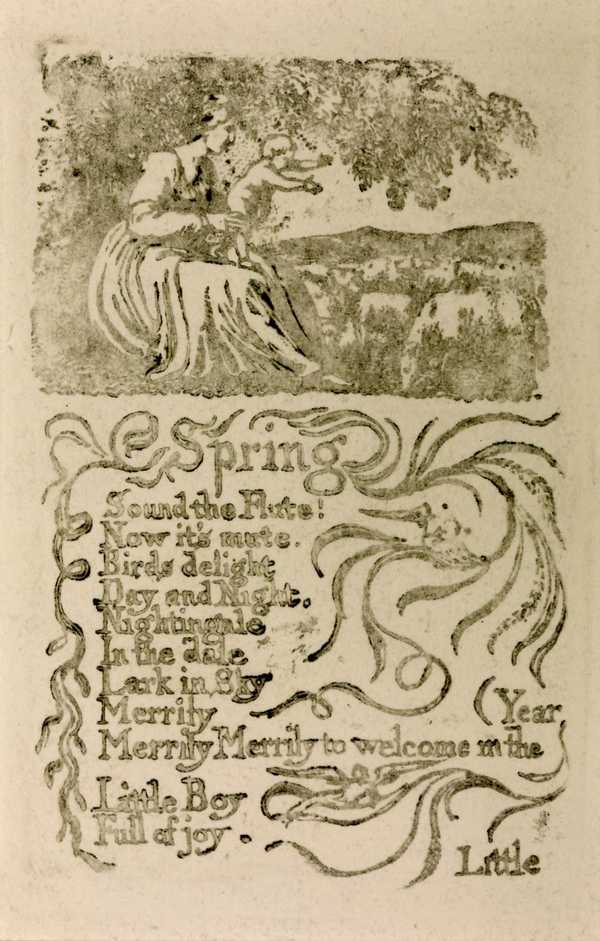 Spring
Sound the Flute!
Now it's mute.
Birds delight
Day and Night.
Nightingale
In the dale
Lark in Sky
Merrily
(Year
Merrily Merrily to welcome in the
Little Boy
Full of joy.
Little